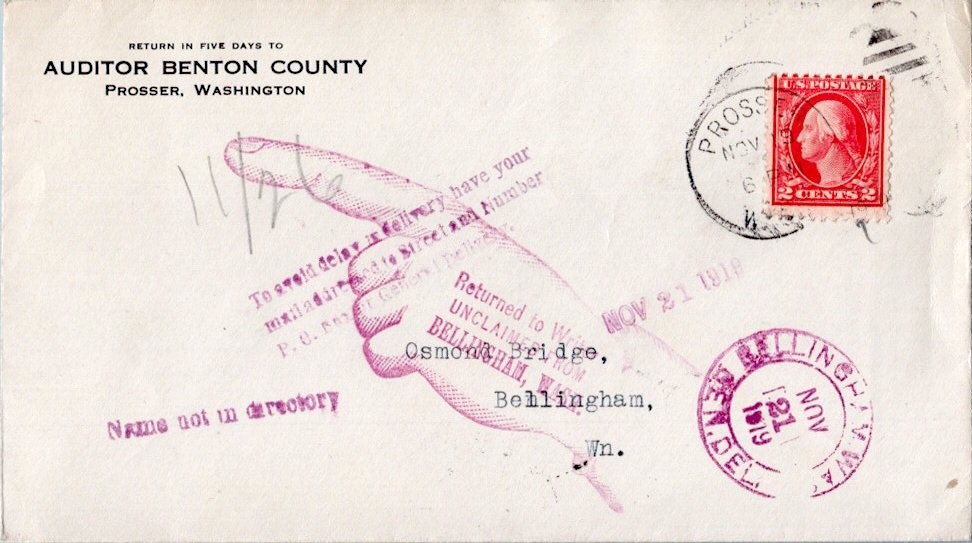 RETURN IN FIVE DAYS TO
AUDITOR BENTON COUNTY
PROSSER, WASHINGTON
U.S. POSTAGE
2 CENTS 2
PROSS
NOV
6
11/26
To avoid delay in delivery have your
mail addressed to Street and Number
P. O. Box or General Delivery.
Returned to
UNCLAIMED FROM
BELLINGHAM, WASH.
NOV 21 1919
Osmond Bridge,
Bellingham,
Wn.
Name not in directory
BELLINGHAM WA
GEN'DEL
NOV
21
1919